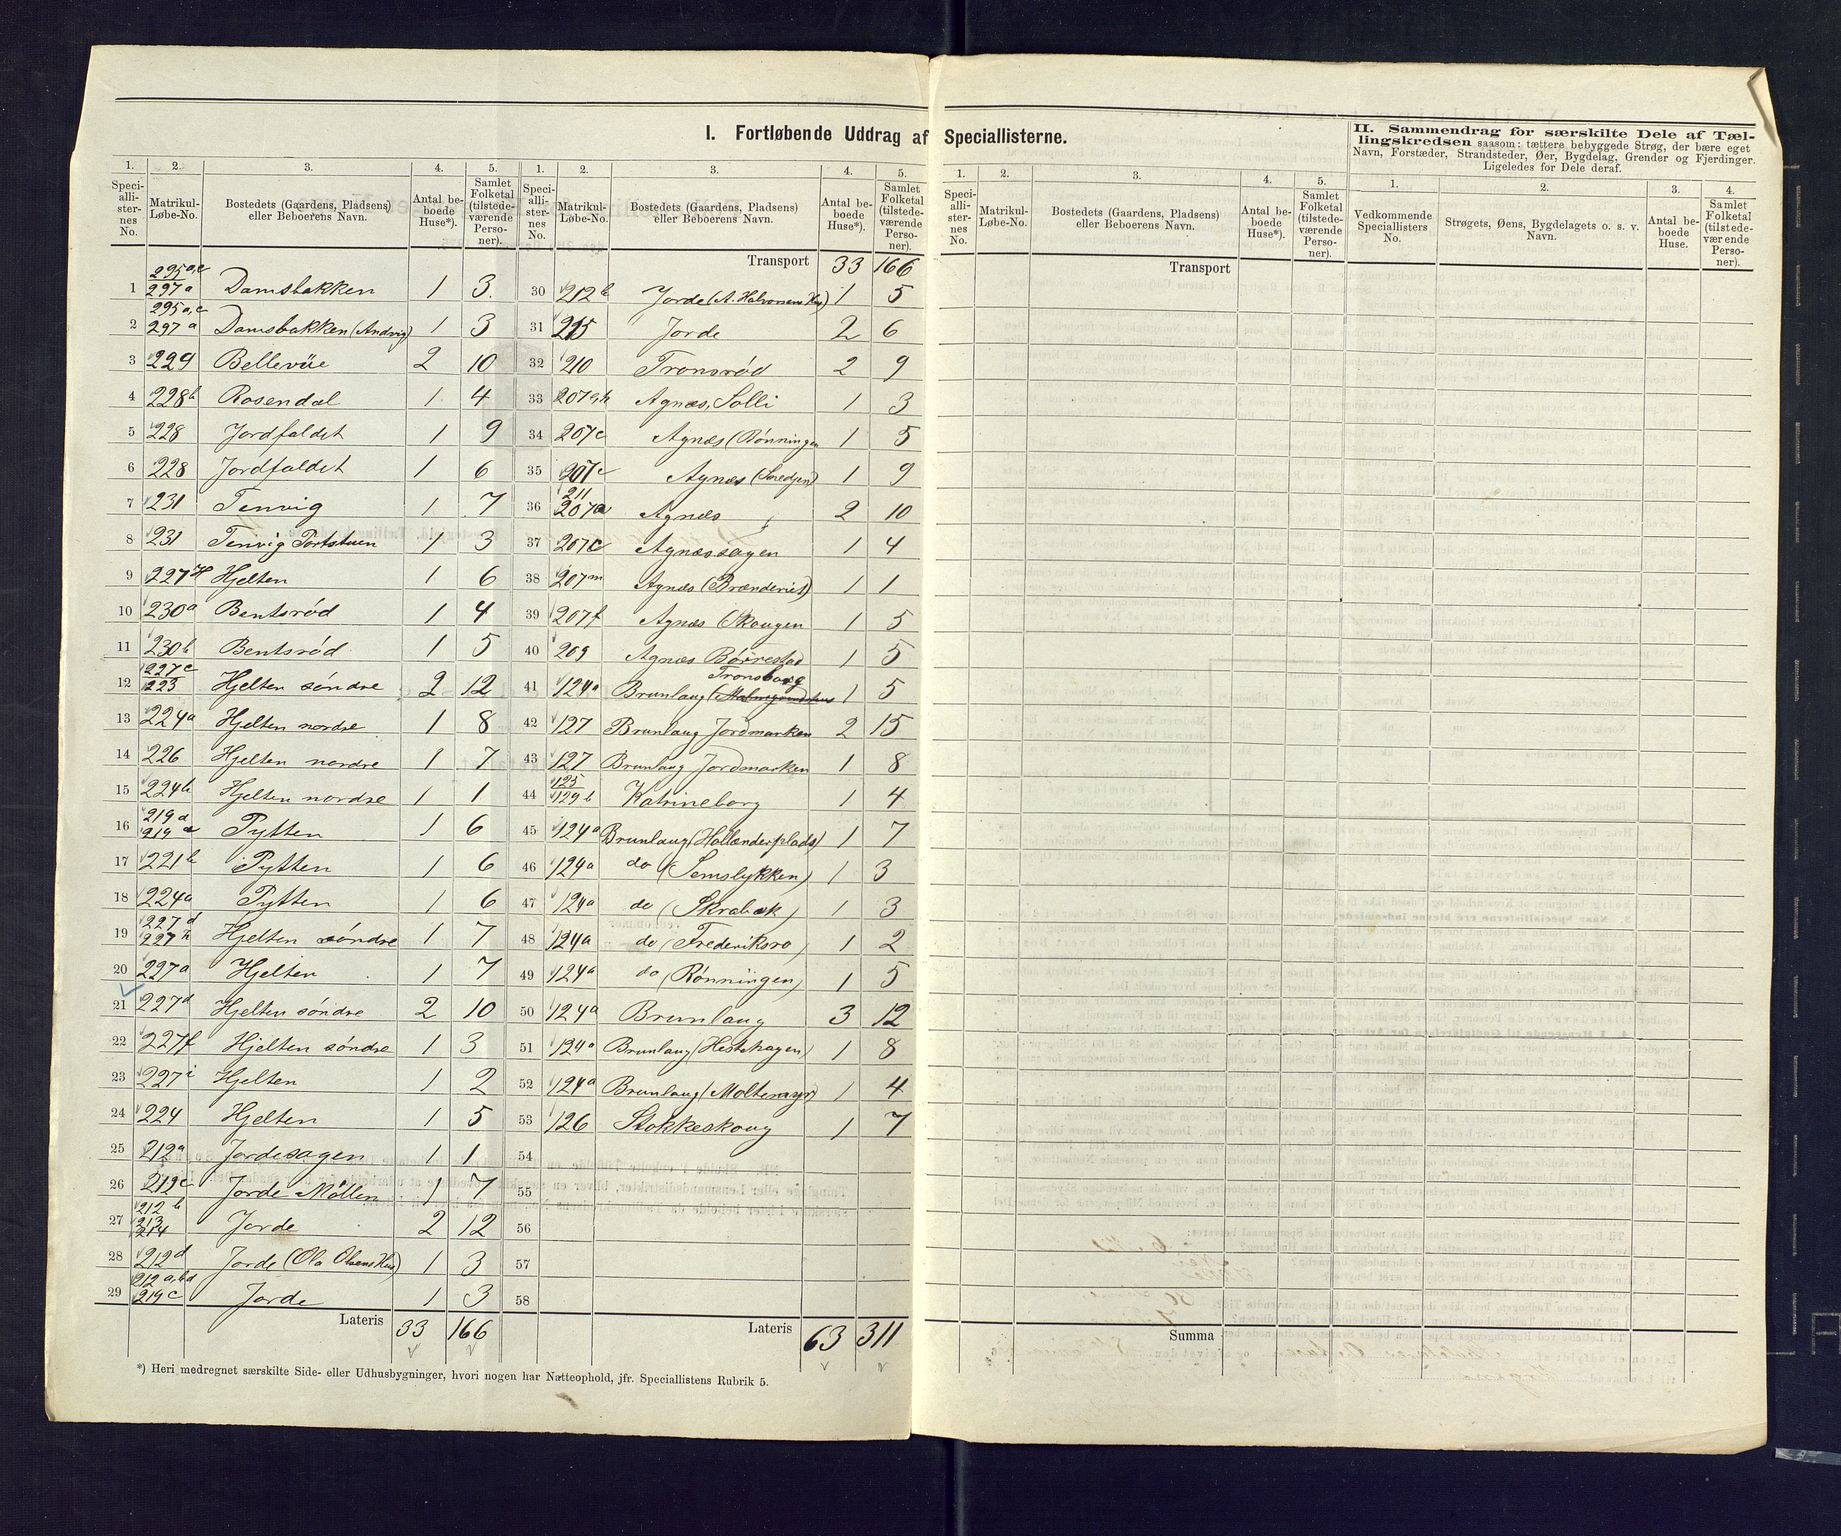 I. Fortløbende Uddrag af Speciallisterne.
II. Sammendrag for særskilte Dele af Tæl-
lingskredsen saasom: tættere bebyggede Strøg, der bære eget
Navn, Forstæder, Strandsteder, Øer, Bygdelag, Grender og Fjerdinger.
Ligeledes for Dele deraf.
1. 2. 3. 4. 5. 1. 2. 3. 4. 5.
Speciallisternes No. Matrikul-Løbe-No. Bostedets (Gaardens, Pladsens) eller Beboerens Navn. Antal beboede Huse*). Samlet Folketal (tilstedeværende Personer). Speciallisternes No. Matrikul-Løbe-No. Bostedets (Gaardens, Pladsens) eller Beboerens Navn. Antal beboede Huse*). Samlet Folketal (tilstedeværende Personer).
1 295a,c 297a Damsbakken 1 3
2 295a,c 297a Damsbakken (Andvig) 1 3
3 229 Bellevüe 2 10
4 228b Rosendal 1 4
5 228 Jordfaldet 1 9
6 228 Jordfaldet 1 6
7 231 Tenvig 1 7
8 231 Tenvig Portstuen 1 3
9 227H Hjelten 1 6
10 230a Bentsrød 1 4
11 230b Bentsrød 1 5
12 227c 223 Hjelten søndre 2 12
13 224a Hjelten nordre 1 8
14 226 Hjelten nordre 1 7
15 224b Hjelten nordre 1 1
16 219d 219e Pytten 1 6
17 221b Pytten 1 6
18 224a Pytten 1 6
19 227d 227h Hjelten søndre 1 7
20 227a Hjelten 1 7
21 227d Hjelten søndre 2 10
22 227f Hjelten søndre 1 3
23 227i Hjelten 1 2
24 224 Hjelten 1 5
25 212a Jordesagen 1 1
26 212c Jorde Møllen 1 7
27 212b 213 214 Jorde 2 12
28 212d Jorde (Ola Olsens Hus) 1 3
29 212a,b,d 219c Jorde 1 3
Lateris 33 166
Transport 33 166
30 212b Jorde (A. Halvorsens Hus) 1 5
31 215 Jorde 2 6
32 210 Tronsrød 2 9
33 207g,h Agnæs, Solli 1 3
34 207c Agnæs (Rønningen 1 5
35 207c Agnæs (Smedjen) 1 9
36 211 207a Agnæs 2 10
37 207c Agnæssagen 1 4
38 207m Agnæs (Brænderiet) 1 1
39 207f Agnæs (Skougen 1 5
40 209 Agnæs Børrestad 1 5
41 124a Brunlaug (Tronsborg 1 5
42 127 Brunlaug Jordmarken 2 15
43 127 Brunlaug Jordmarken 1 8
44 125 129b Katrineborg 1 4
45 124a Brunlaug (Hollænderplads) 1 7
46 124a do (Semslykken) 1 3
47 124a do (Skrabæk) 1 3
48 124a do (Frederiksro) 1 2
49 124a do (Rønningen) 1 5
50 124a Brunlaug 3 12
51 124a Brunlaug (Hestehagen) 1 8
52 124a Brunlaug (Moltemyr) 1 4
53 126 Stokkeskoug 1 7
54
55
56
57
58
Lateris 63 311
*) Heri medregnet særskilte Side- eller Udhusbygninger, hvori nogen har Natteophold, jfr. Speciallistens Rubrik 5.
1. 2. 3. 4. 5.
Speciallisternes No. Matrikul-Løbe-No. Bostedets (Gaardens, Pladsens) eller Beboerens Navn. Antal beboede Huse*). Samlet Folketal (tilstedeværende Personer).
Transport
Summa
1. 2. 3. 4.
Vedkommende Speciallisters No. Strøgets, Øens, Bygdelagets o. s. v. Navn. Antal beboede Huse. Samlet Folketal (tilstedeværende Personer).